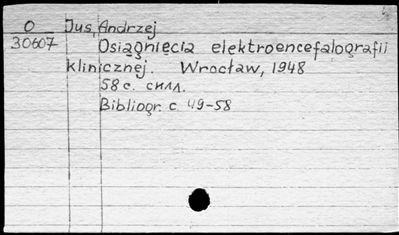 O Jus, Andrzej
30607 Osiągnięcia elektroencefalografii
klinicznej. Wrocław, 1948
58 c. с илл.
Bibliogr. c. 49-58